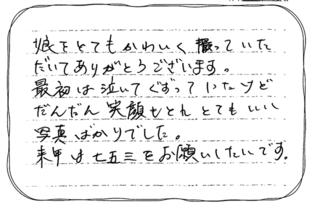 娘をとてもかわいく撮っていた
だいてありがとうございます。
最初は泣いてぐずっていたけど
だんだん笑顔もとれとてもいい
写真ばかりでした。
来年は七五三をお願いしたいです。